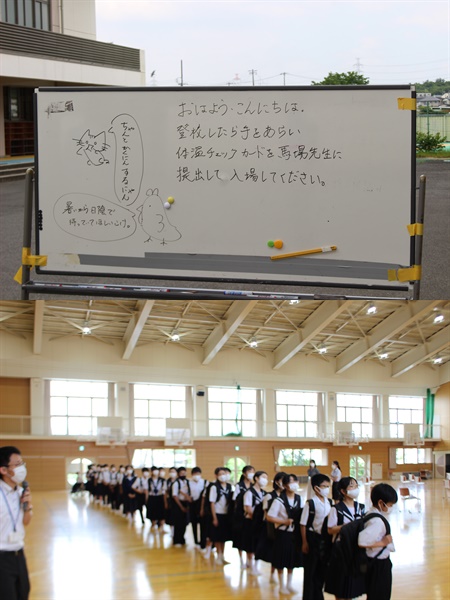 おはよう・こんにちは。
登校したら手をあらい
体温チェックカードを馬場先生に
提出して入場してください。
ちゃんとかくにんするにゃん
暑いから日陰で
待っててほしいらび。